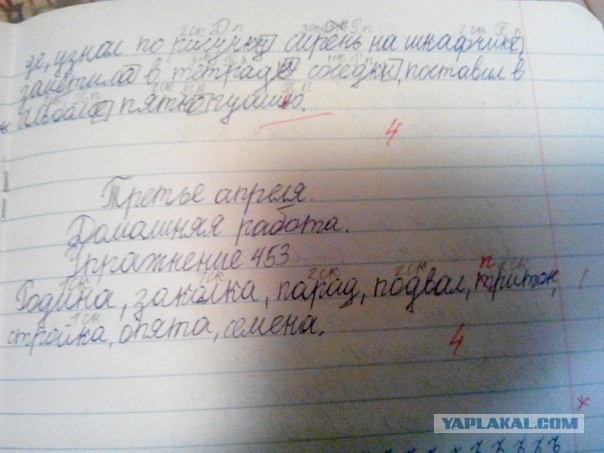 де, узнал по рисунку сирень на шкафчике,
заметила в тетради соседки, поставил в
пятно гуашью.
4
Третье апреля.
Домашняя работа.
Упражнение 453
Родина, заколка, парад, подвал, тритон,
стройка, опята, семена.
4
YAPLAKAL.COM